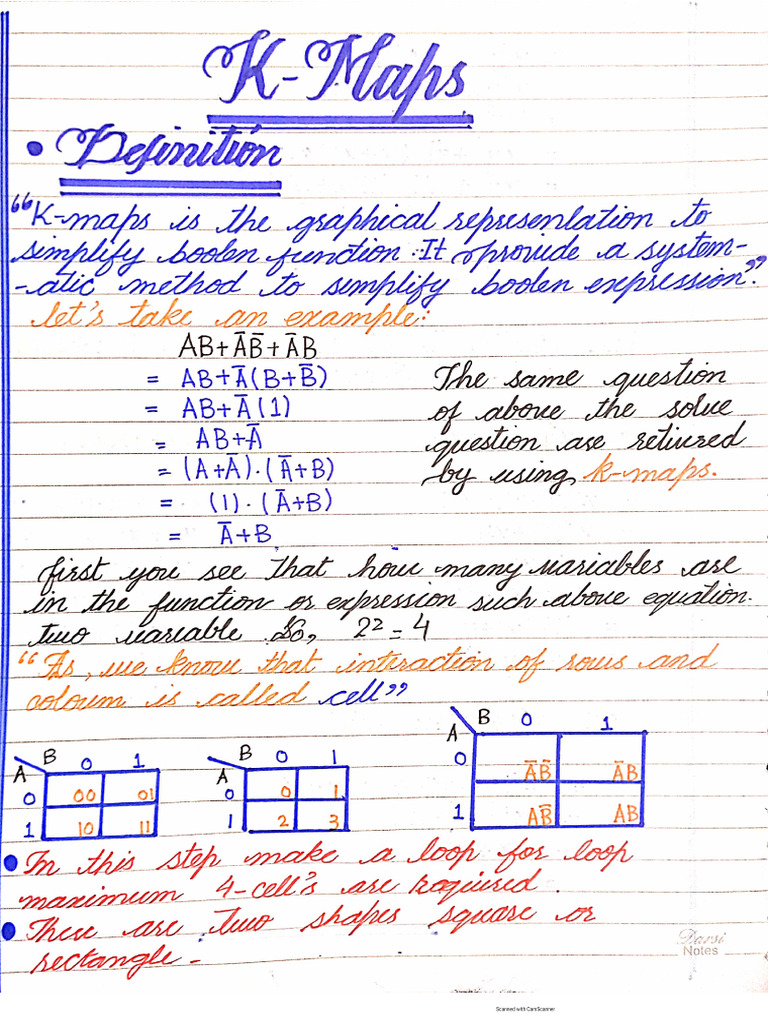 K-Maps
• Definition
“K-maps is the graphical representation to
simplify boolen function. It provide a system-
-atic method to simplify boolen expression”.
let's take an example:
AB+A̅B̅+A̅B
= AB+A̅(B+B̅)
= AB+A̅(1)
= AB+A̅
= (A+A̅)·(A̅+B)
= (1)·(A̅+B)
= A̅+B
The same question
of above the solve
question are retiured
by using k-maps.
first you see that how many variables are
in the function or expression such above equation.
two variable So, 2²=4
“As, we know that interaction of rows and
coloum is called cell”
A B 0 1
0 00 01
1 10 11
A B 0 1
0 0 1
1 2 3
A B 0 1
0 A̅B̅ A̅B
1 AB̅ AB
• In this step make a loop for loop
maximum 4-cell's are required.
• These are two shapes square or
rectangle -
Darsi
Notes
Scanned with CamScanner